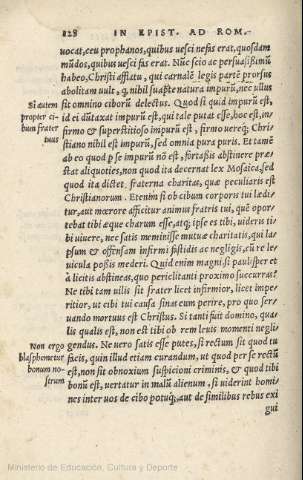 128 IN EPIST. AD ROM.
uocat, ceu prophanos, quibus uesci nefas erat, quosdam
mūdos, quibus uesci fas erat. Nūc scio ac persuasissimū
habeo, Christi afflatu, qui carnalē legis partē prorsus
abolitam uult, q, nihil suapte natura impurū, nec ullus
Si autem
propter ci-
bum frater
tuus
sit omnino ciborū delectus. Quod si quid impurū est,
id ei dūtaxat impurū est, qui tale putat esse, hoc est, in-
firmo & superstitioso impurū est, firmo uereq; Chri-
stiano nihil est impurū, sed omnia pura puris. Et tamē
ab eo quod p se impurū nō est, fortassis abstinere præ-
stat aliquoties, non quod ita decernat lex Mosaica, sed
quod ita dictet fraterna charitas, quæ peculiaris est
Christianorum. Etenim si ob cibum corporis tui lædi-
tur, aut mœrore afficitur animus fratris tui, quē opor-
tebat tibi æque charum esse, atq; ipse es tibi, uideris ti-
bi uiuere, nec satis meminisse mutuæ charitatis, qui la-
psum & offensam infirmi fastidis ac negligis, cū re le-
uicula possis mederi. Quid enim magni, si paulisper et
à licitis abstineas, quo periclitanti proximo succurras?
Ne tibi tam uilis sit frater licet infirmior, licet impe-
ritior, ut cibi tui causa sinas eum perire, pro quo ser-
uando mortuus est Christus. Si tanti fuit domino, qua-
lis qualis est, non est tibi ob rem leuis momenti negli-
Non ergo
blasphemetur
bonum no-
strum
gendus. Ne uero satis esse putes, si rectum sit quod tu
facis, quin illud etiam curandum, ut quod per se rectū
est, non sit obnoxium suspicioni criminis, & quod tibi
bonū est, uertatur in malū alienum, si uiderint homi-
nes inter uos de cibo potuq;, aut de similibus rebus exi
gui
Ministerio de Educación, Cultura y Deporte